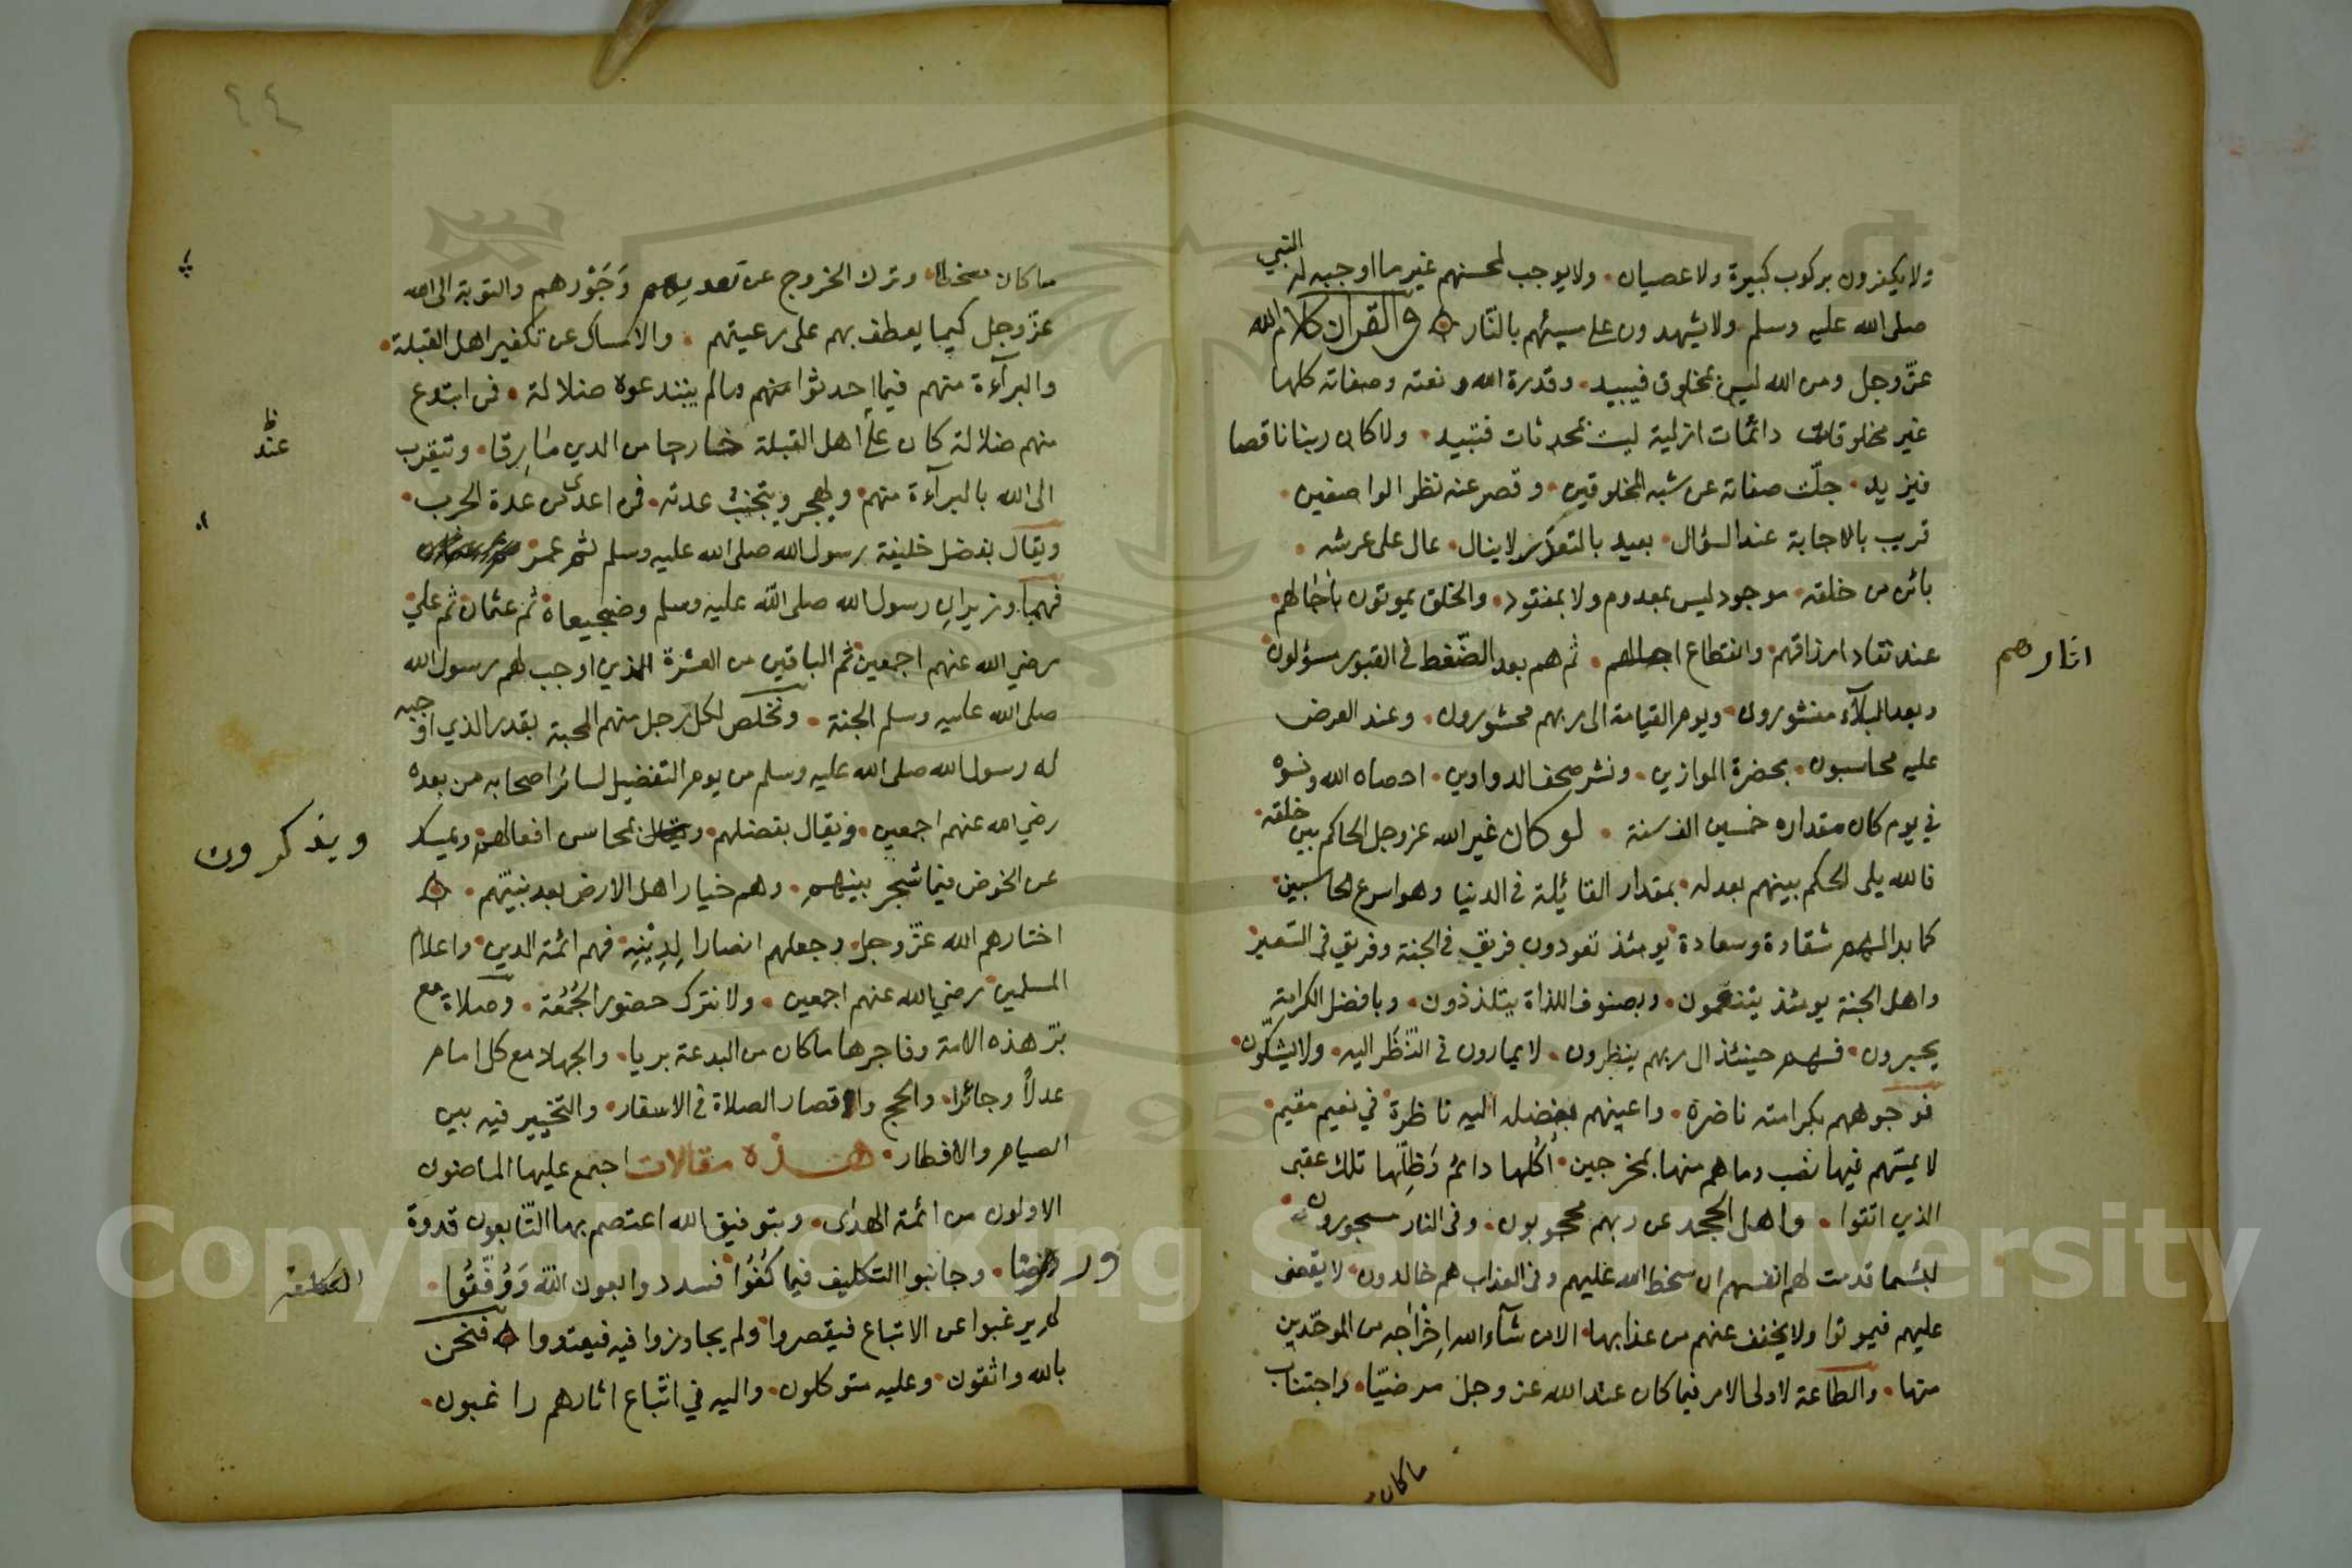 ولا يكفرون بركوب كبيرة ولا عصيان ولا يوجب لمحسنهم غير ما اوجبه له النبي
صلى الله عليه وسلم ولا يشهدون على مسيئهم بالنّار والقران كلام الله
عزّ وجل ومن الله ليس بمخلوق فيبيد وقدرة الله ونعته وصفاته كلها
غير مخلوقات دائمات ازلية ليست بمحدثات فتبيد ولا كان ربنا ناقصا
فيزيد جلّت صفاته عن شبه المخلوقين وقصر عنه نظر الواصفين
قريب بالاجابة عند السؤال بعيد بالتعزز لا ينال عال على عرشه
بائن من خلقه موجود ليس بمعدوم ولا بمفقود والخلق يموتون باجالهم
عند نفاد ارزاقهم وانقطاع اجالهم ثم هم بعد الضّغط في القبور مسؤلون
اثارهم
وبعد البلآء منشورون ويوم القيامة الى ربهم محشورون وعند العرض
عليه محاسبون بحضرة الموازين ونشر صحف الدواوين احصاه الله ونسوه
في يوم كان مقداره خمسين الف سنة لو كان غير الله عز وجل الحاكم بين خلقه
فالله يلى الحكم بينهم بعدله بمقدار القائلة في الدنيا وهو اسرع الحاسبين
كما بداهم شقاوة وسعادة يومئذ تعودون فريق في الجنة وفريق في السّعير
واهل الجنة يومئذ يتنعمون وبصنوف اللذاة يتلذذون وبافضل الكرامة
يحبرون فهم حينئذ الى ربهم ينظرون لا يمارون في النّظر اليه ولا يشكّون
فوجوههم بكرامته ناضرة واعينهم بفضله اليه ناظرة في نعيم مقيم
لا يمسّهم فيها نصب وما هم منها بمخرجين اُكلها دائم وَظِلّها تلك عقبى
الذين اتقوا واهل الجحد عن ربهم محجوبون وفي النار مسجورون
لبئسما قدمت لهم انفسهم ان سخط الله عليهم وفي العذاب هم خالدون لا يقضى
عليهم فيموتوا ولا يخفف عنهم من عذابها الا من شآء الله اِخْرَاجه من الموحّدين
منها والطاعة لاولى الامر فيما كان عند الله عز وجل مرضيّا واجتناب
ما كان
٤٤
ما كان مسخطا وترك الخروج عن تعديهم وَجَوْرهم والتوبة الى الله
عزّ وجل كيما يعطف بهم على رعيتهم والامساك عن تكفير اهل القبلة
والبرآءة منهم فيما احدثوا منهم ما لم يبتدعوه ضلالة فمن ابتدع
منهم ضلالة كان على اهل القبلة خارجا من الدين مارقا وتيقرب
عند
الى الله بالبرآءة منهم ويهجر ويتجنب عدته فهي اعدى من عدة الجرب
ويقال بفضل خليفة رسول الله صلى الله عليه وسلم ثم عمر
فهما وزيران رسول الله صلى الله عليه وسلم وضجيعاه ثم عثمان ثم علي
رضي الله عنهم اجمعين ثم الباقين من العشرة الذين اوجب لهم رسول الله
صلى الله عليه وسلم الجنة ونخلص لكل رجل منهم المحبة بقدر الذي اوجبه
له رسول الله صلى الله عليه وسلم من يوم التفضيل لسائر اصحابه من بعده
رضي الله عنهم اجمعين ويقال بفضلهم بمحاسن افعالهم ويمسك
ويذكرون
عن الخوض فيما شجر بينهم وهم خيار اهل الارض بعد نبيّهم
اختارهم الله عزّ وجل وجعلهم انصارا لِدِيْنِهِ فهم ائمة الدين واعلام
المسلمين رضي الله عنهم اجمعين ولا نترك حضور الجُمُعَة وصلاة مع
برّ هذه الامة وفاجرها ما كان من البدعة بريا والجهاد مع كل امام
عدلاً وجائرا والحج واقصار الصلاة في الاسفار والتخيير فيه بين
الصيام والافطار هذه مقالات اجتمع عليها الماضون
الاولون من ائمة الهدى وبتوفيق الله اعتصم بها التّابعون قدوة
ورضا وجانبوا التكليف فيما كُفُوْا فسددوا بعون الله وَوُفّقُوا
لم يرغبوا عن الاتباع فيقصروا ولم يجاوزوا فيه فيعتدوا فنحن
بالله واثقون وعليه متوكلون واليه في اتّباع اثارهم راغبون
Copyright © King Saud University